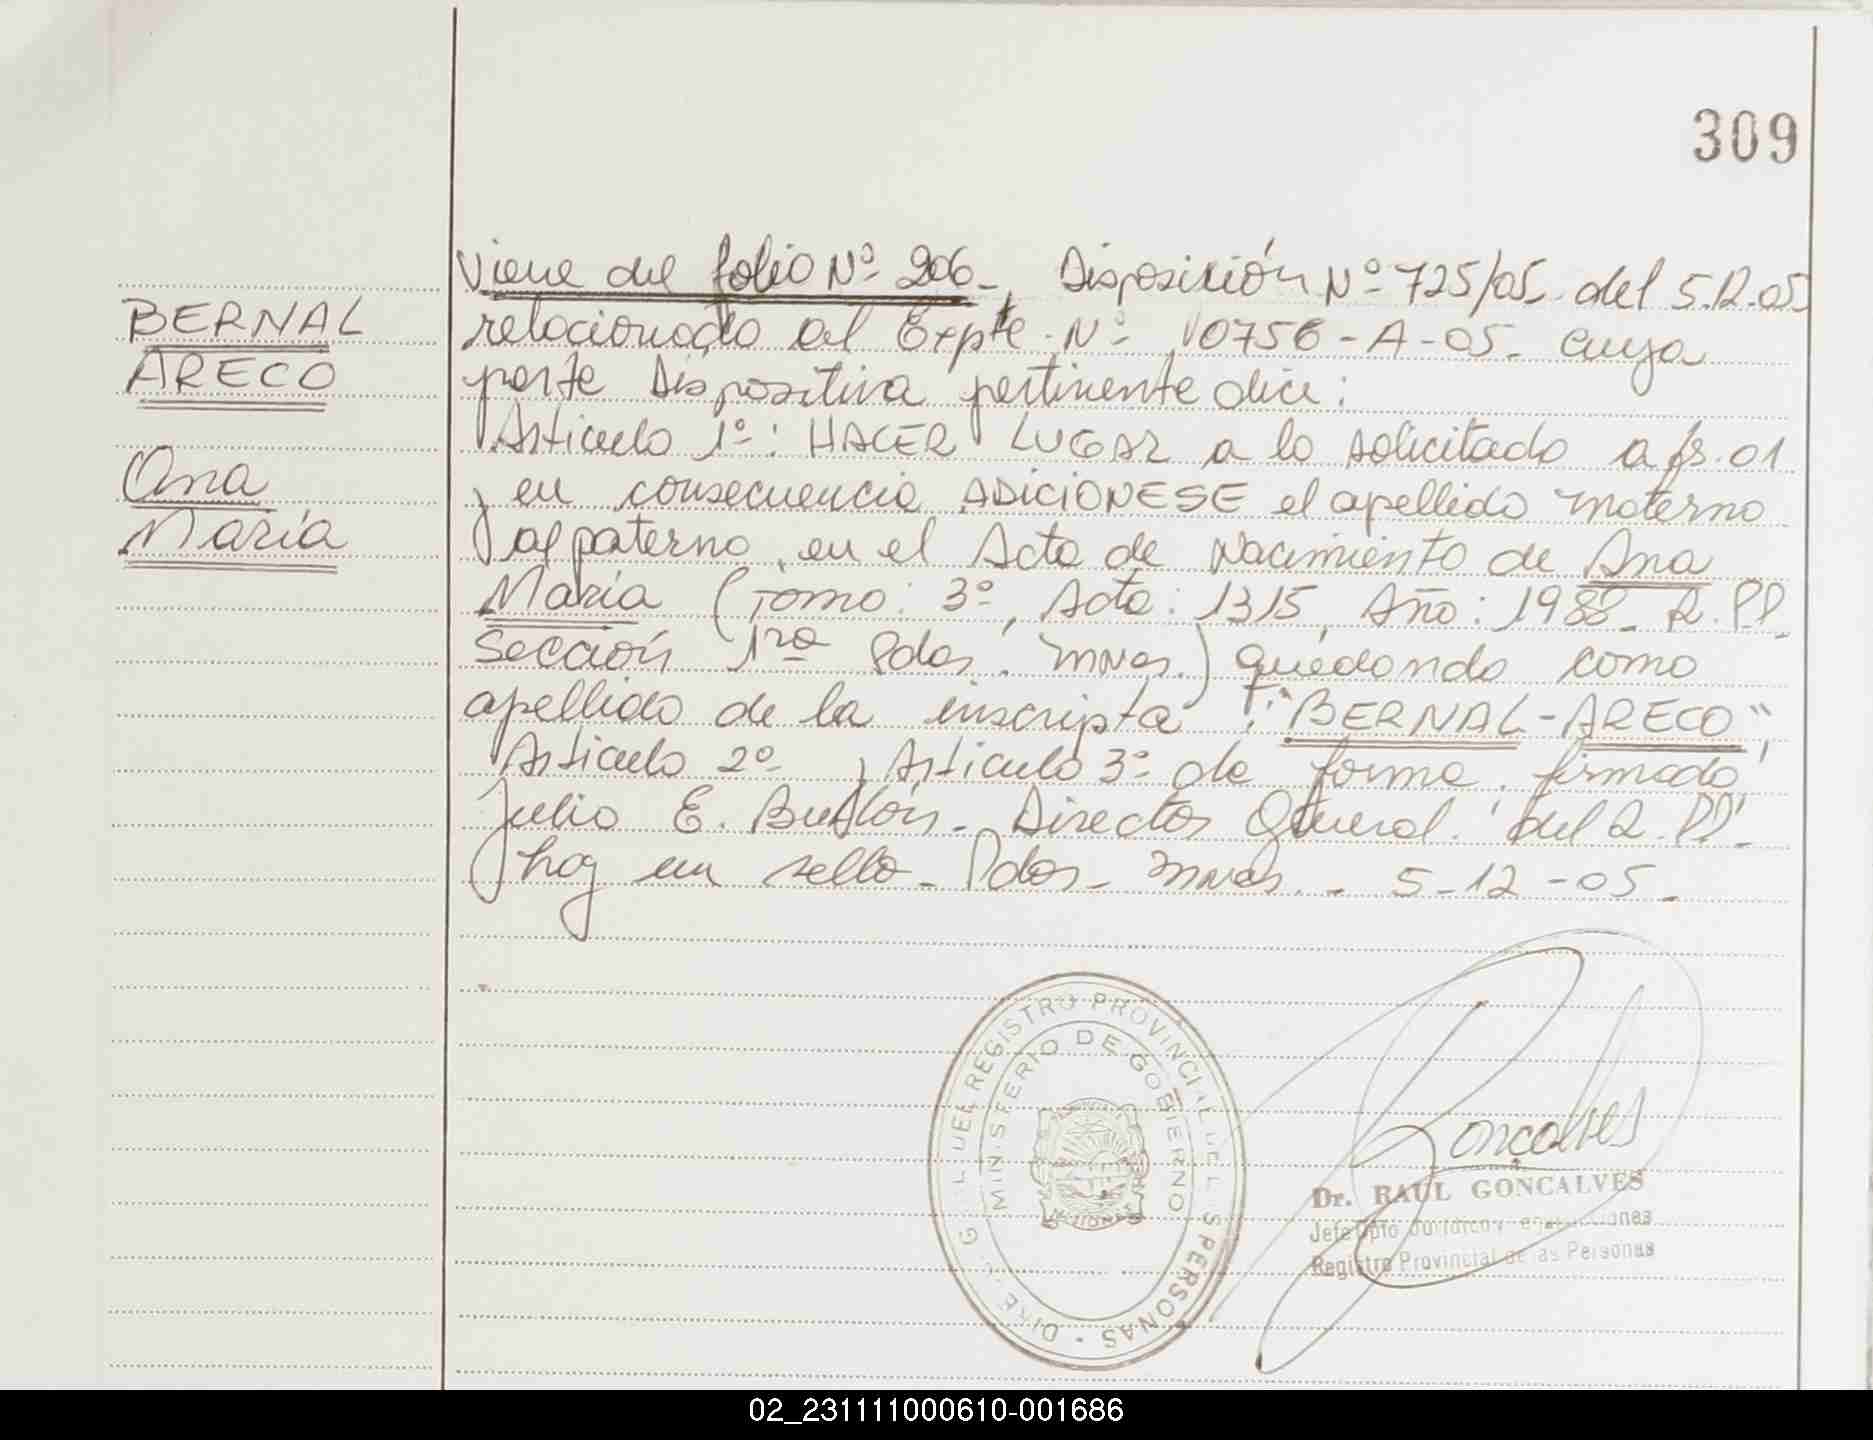 309
BERNAL
ARECO
Ana
María
Viene del folio Nº 206-, Disposición Nº 725/05- del 5.12.05
relacionado al Expte. Nº 10756-A-05- cuya
parte Dispositiva pertinente dice:
Artículo 1º: HACER LUGAR a lo solicitado a fs. 01
y en consecuencia ADICIONESE el apellido materno
al paterno, en el Acta de Nacimiento de Ana
María (Tomo: 3º, Acta: 1315, Año: 1988- R.PP.
Sección 1ra Pdas. Mnes.) quedando como
apellido de la inscripta: "BERNAL-ARECO",
Artículo 2º y Artículo 3º de forma. firmado
Julio E. Director General del R.PP.
hay un sello- Pdas- Mnes.- 5-12-05-
DIREC. GRAL. DEL REGISTRO PROVINCIAL DE LAS PERSONAS
MINISTERIO DE GOBIERNO
MISIONES
Goncalves
Dr. RAUL GONCALVES
Jefe Dpto Jurídico y
Registro Provincial de las Personas
02_231111000610-001686